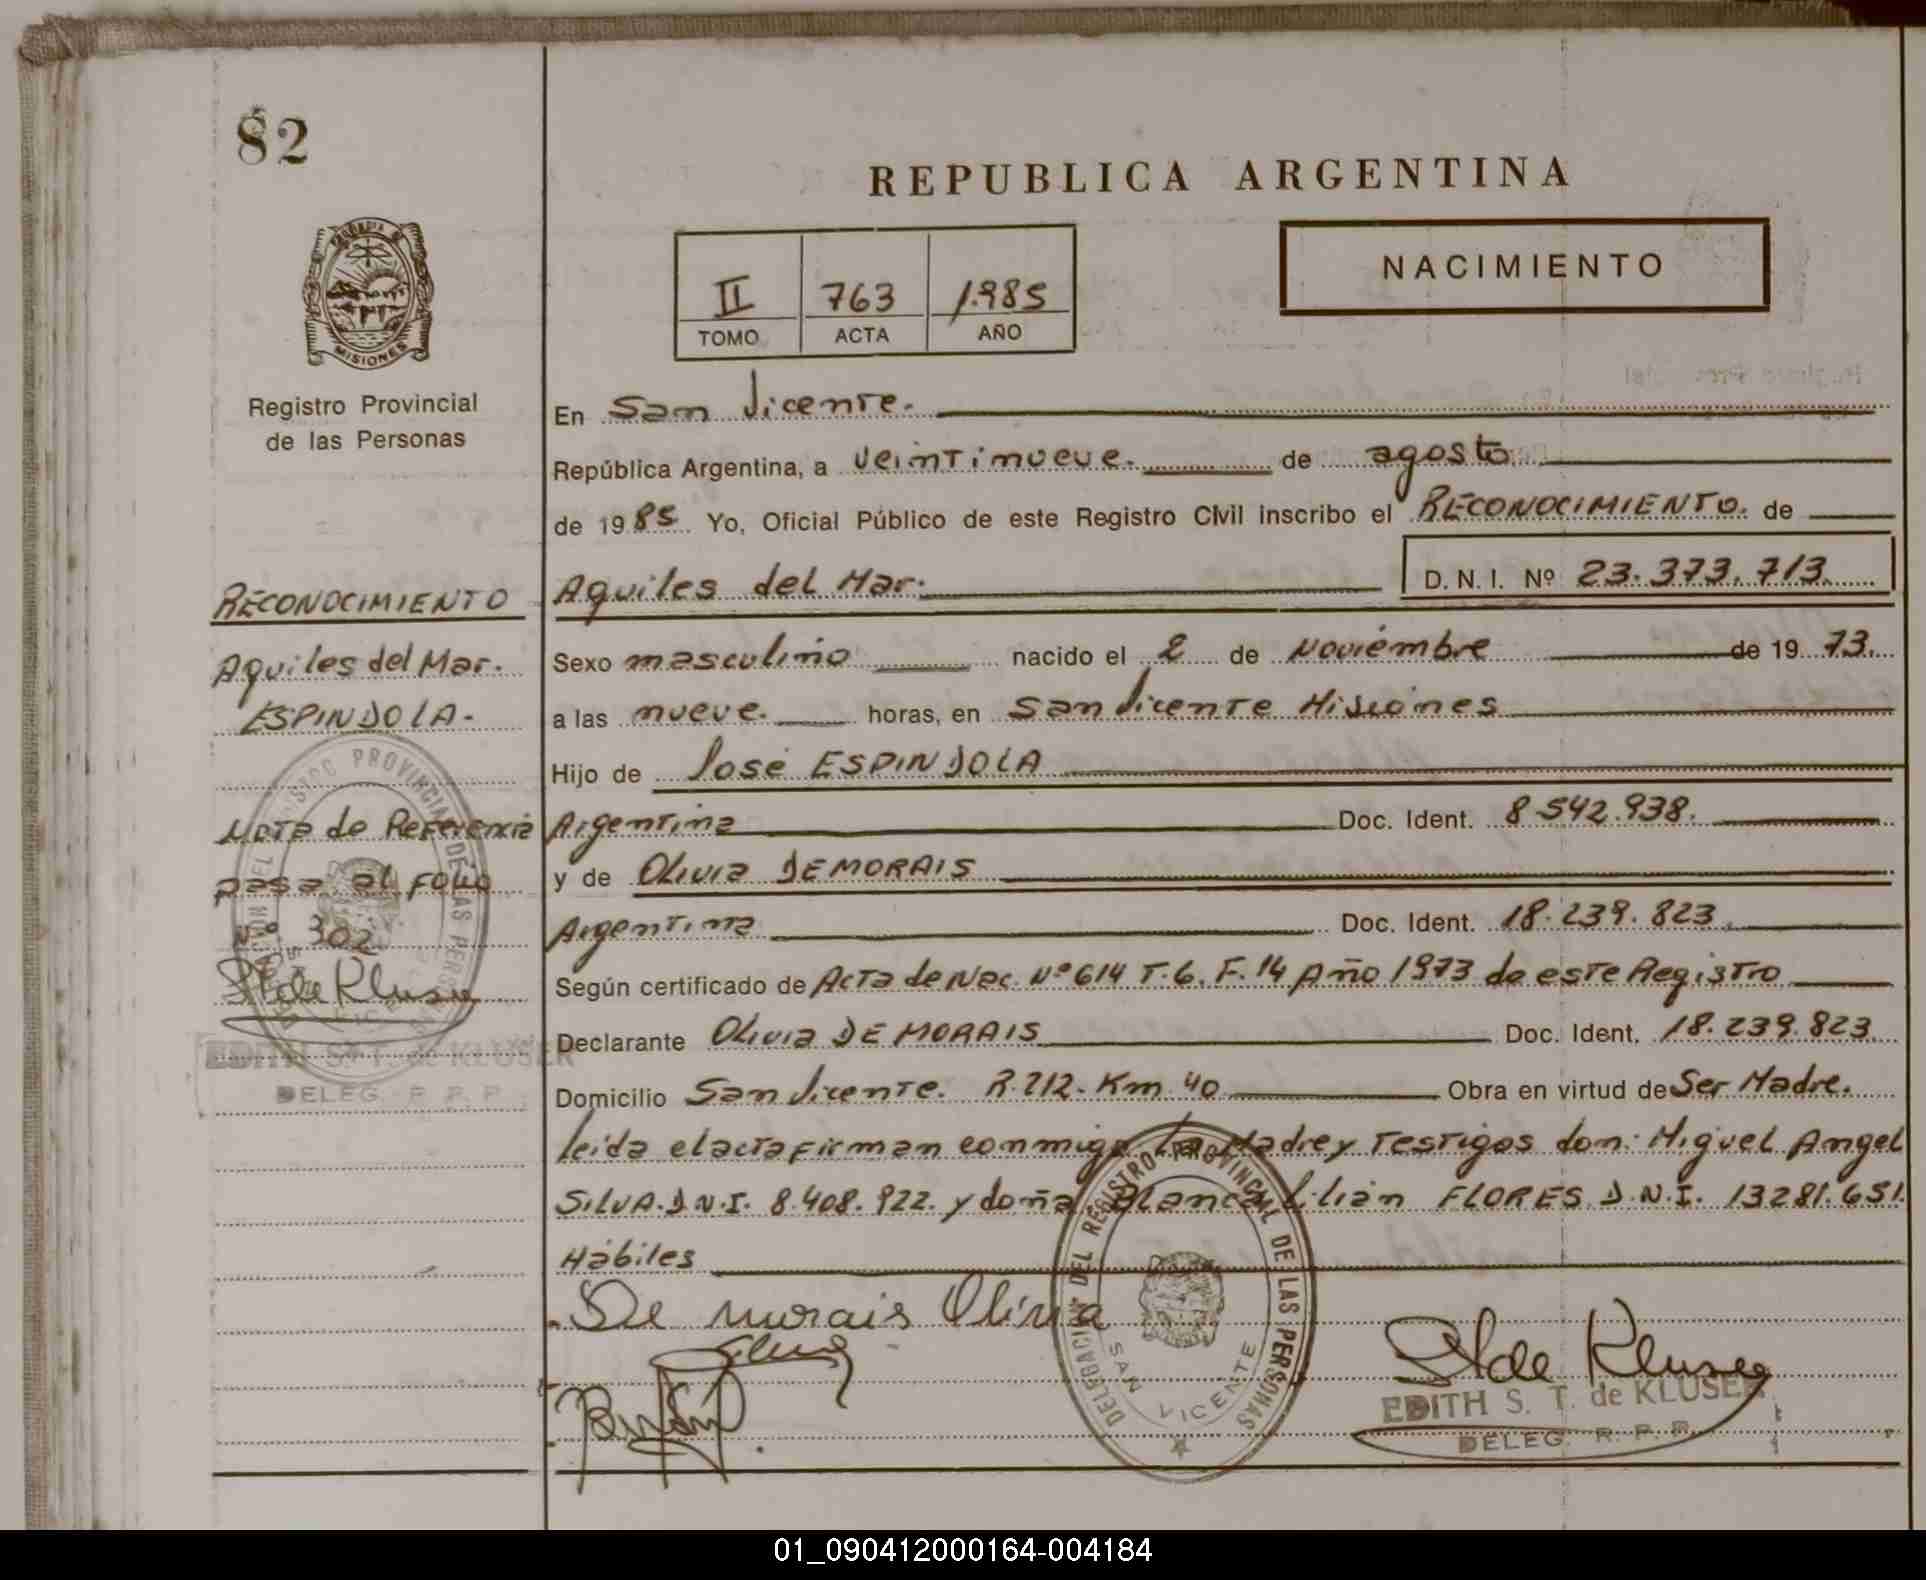 82
REPUBLICA ARGENTINA
NACIMIENTO
II 763 1.985
TOMO ACTA AÑO
PROVINCIA D
MISIONES
Registro Provincial
de las Personas
En San Vicente.
República Argentina, a veintinueve. de agosto
de 1985 Yo, Oficial Público de este Registro Civil inscribo el RECONOCIMIENTO. de
Aquiles del Mar. D.N.I. Nº 23.373.713
Sexo masculino nacido el 2 de Noviembre de 1973.
a las nueve. horas, en San Vicente Misiones
Hijo de José ESPINDOLA
Argentina Doc. Ident. 8.542.938.
y de Olivia DEMORAIS
Argentina Doc. Ident. 18.239.823
Según certificado de Acta de Nac. Nº 614 T.6. F.14 Año 1973 de este Registro
Declarante Olivia DE MORAIS Doc. Ident. 18.239.823
Domicilio San Vicente. R.212. Km 40 Obra en virtud de Ser Madre.
leida el acta firman conmigo la Madre y Testigos don: Miguel Angel
SILVA. D.N.I. 8.408.922. y doña Blanca Lilian FLORES D.N.I. 13281.651.
Hábiles
De murais Olivia
St de Kluser
EDITH S. T. de KLUSER
DELEG. R. P. P.
DELEGACION DEL REGISTRO PROVINCIAL DE LAS PERSONAS
SAN VICENTE
RECONOCIMIENTO
Aquiles del Mar.
ESPINDOLA.
Nota de Referencia
pasa al folio
Nº 302
St de Kluser
EDITH S. T. de KLUSER
DELEG. R. P. P.
01_090412000164-004184